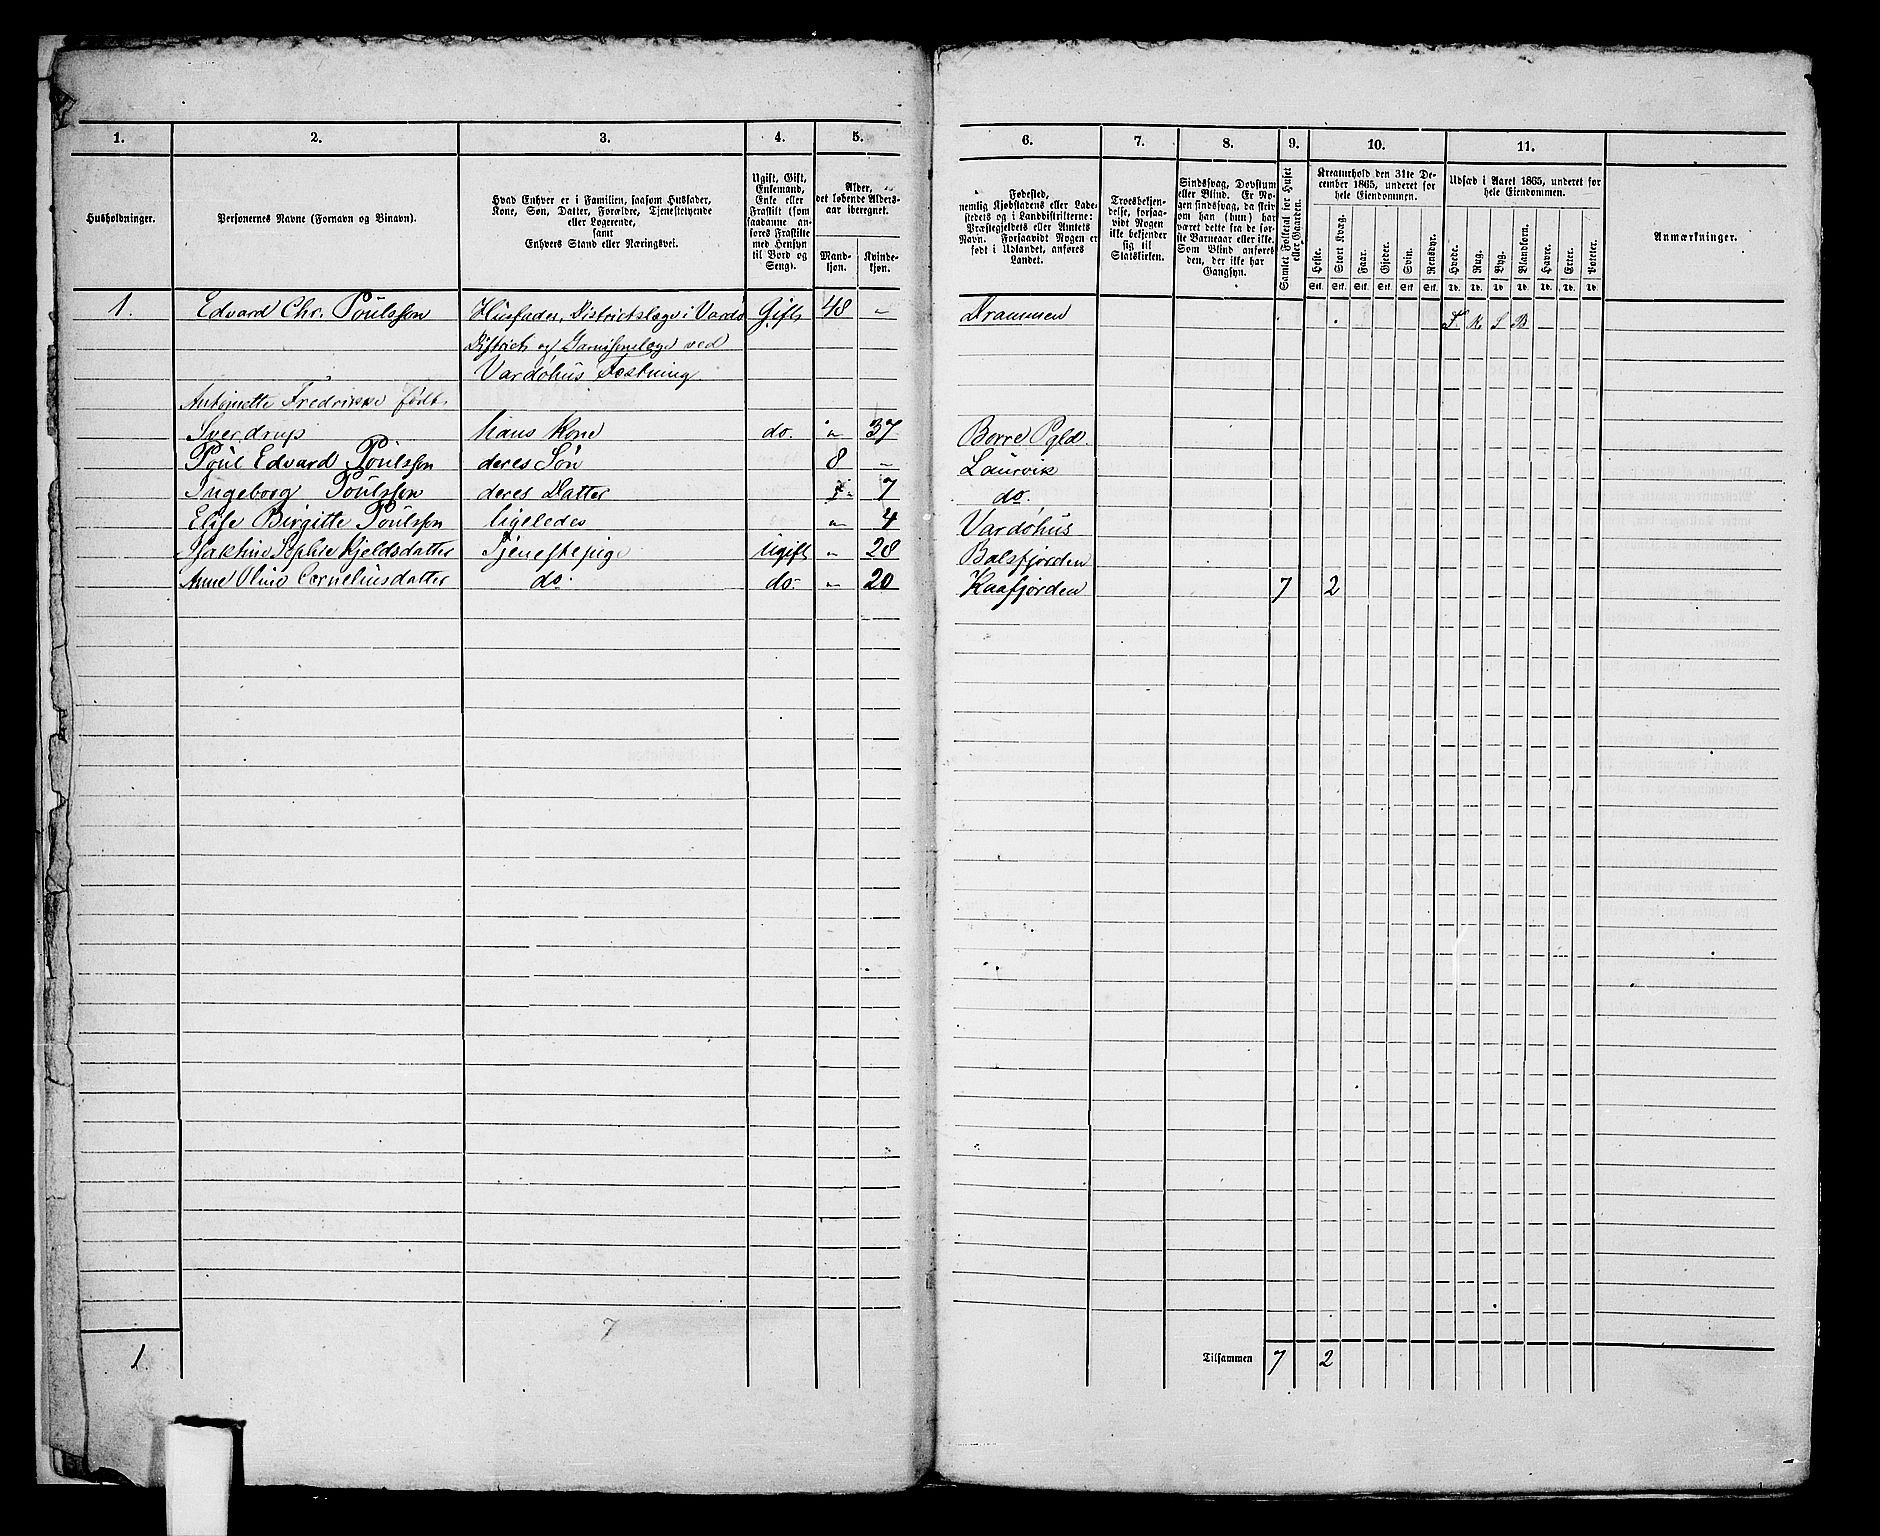 1. 2. 3. 4. 5. 6. 7. 8. 9. 10. 11.
Husholdninger.
Personernes Navne (Fornavn og Binavn).
Hvad Enhver er i Familien, saasom Husfader,
Kone, Søn, Datter, Forældre, Tjenestetyende
eller Logerende,
samt
Enhvers Stand eller Næringsvei.
Ugift, Gift,
Enkemand,
Enke eller
Fraskilt (som
saadanne an-
føres Fraskilte
med Hensyn
til Bord og
Seng).
Alder,
det løbende Alders-
aar iberegnet.
Mand-
kjøn.
Kvinde-
kjøn.
Fødested,
nemlig Kjøbstadens eller Lade-
stedets og i Landdistrikterne:
Præstegjeldets eller Amtets
Navn. Forsaavidt Nogen er
født i Udlandet, anføres
Landet.
Troesbekjen-
delse, forsaa-
vidt Nogen
ikke bekjender
sig til
Statskirken.
Sindssvag, Døvstum
eller Blind. Er No-
gen sindssvag, da skriv
om han (hun) har
været dette fra de før-
ste Barneaar eller ikke.
Som Blind anføres
den, der ikke har
Gangsyn.
Samlet Folketal for Huset
eller Gaarden.
Kreaturhold den 31te De-
cember 1865, underet for
hele Eiendommen.
Heste. Stort Kvæg. Faar. Gjeder. Svin. Rensdyr.
Stk. Stk. Stk. Stk. Stk. Stk.
Udsæd i Aaret 1865, underet for
hele Eiendommen.
Hvede. Rug. Byg. Blandkorn. Havre. Erter. Poteter.
Td. Td. Td. Td. Td. Td. Td.
Anmærkninger.
1. Edvard Chr. Poulsson Husfader, Districtslæge i Vardø Gift 48 „ Drammen
District og Garnisonslæge ved
Vardøhus Fæstning
Antoinette Fredrikke født
Sverdrup hans Kone do. „ 37 Borre Pgld.
Poul Edvard Poulsson deres Søn 8 „ Laurvik
Ingeborg Poulsson deres Datter „ 7 do.
Elise Birgitte Poulsson ligeledes „ 4 Vardøhus
Sophie Kjeldsdatter Tjenestepige Ugift „ 28 Balsfjorden
Anne Oline Corneliusdatter do. do. „ 20 Kaafjorden 7 2
7
1. Tilsammen 7 2